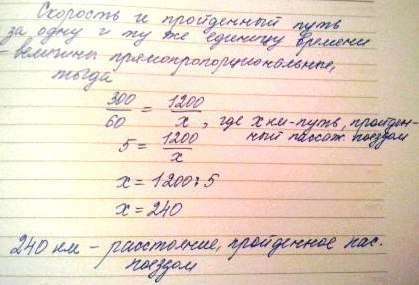 Скорость и пройденный путь
за одну и ту же единицу времени
величины прямопропорциональные,
тогда
300/60 = 1200/x, где x км-путь, пройден-
ный пассаж. поездом
5 = 1200/x
x = 1200:5
x = 240
240 км - расстояние, пройденное пас.
поездом